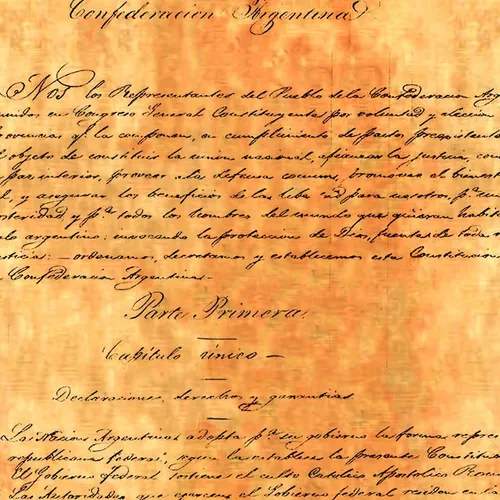 Confederacion Argentina
Nos los Representantes del Pueblo de la Confederacion Arg
unidos en Congreso General Constituyente por voluntad y eleccion
rovincias qe. la componen, en cumplimiento de pactos preexistente
l objeto de constituir la union nacional, afianzar la justicia, con
paz interior, proveer a la defensa comun, promover el bienest
l, y asegurar los beneficios de la libe tad para nosotros, pa. nu
osteridad y pa. todos los hombres del mundo que quieran habit
elo argentino: invocando la proteccion de Dios, fuente de toda r
sticia: — ordenamos, decretamos y establecemos esta Constitucion
Confederacion Argentina.-
Parte Primera.
Capitulo único —
Declaraciones, derechos y garantias
La Nacion Argentina adopta pa. su gobierno la forma repres
republicana federal, segun la establece la presente Constituc
El Gobierno federal sostiene el culto Catolico Apostolico Rom
Las Autoridades que ejercen el Gobierno federal residen en la